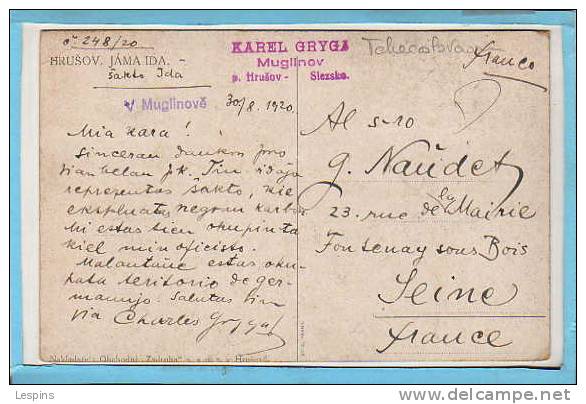 č 248/20
HRUŠOV. JÁMA IDA. -
Ŝakto Ida
V Muglinově
30/8. 1920.
Mia kara!
Sinceran dankon pro
via bela p.k. Tiu ĉi
reprezentas ŝakto, kie
ekspluatas nigran karbon
Mi estas tien okupinta
kiel min oficisto.
Malantaŭe estas oku-
pata teritorio de ger-
manujo. Salutas vin
via Charles Gryga
Nakladatel: Obchodní „Záduha" v Hrušově.
KAREL GRYGA
Muglinov
p. Hrušov - Slezsko.
Tchécoslovaq
franco
Al s-ro
G. Naudet
23. rue de la Mairie
Fontenay sous Bois
Seine
france
Lespins
http://www.delcampe.net